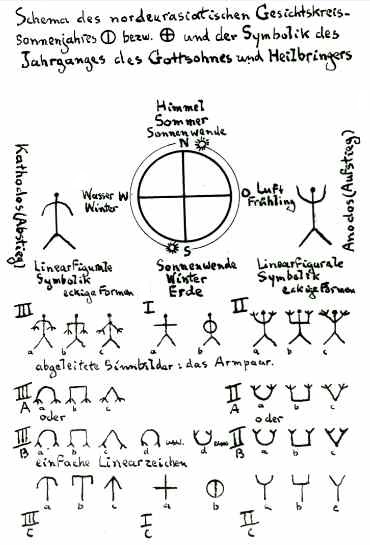 Schema des nordeurasiatischen Gesichtskreis-
sonnenjahres bezw. und der Symbolik des
Jahrganges des Gottsohnes und Heilbringers
Himmel
Sommer
Sonnenwende
N
Kathodos (Abstieg)
Anodos (Aufstieg)
Wasser W
Winter
O Luft
Frühling
S
Linearfigurale
Symbolik
eckige Formen
Sonnenwende
Winter
Erde
Linearfigurale
Symbolik
eckige Formen
III I II
a b c a b a b c
abgeleitete Sinnbilder: das Armpaar.
III A a b c II A a b c
oder oder
III B a b c d usw. d usw. II B a b c
einfache Linearzeichen
a b c a b a b c
III C I C II C